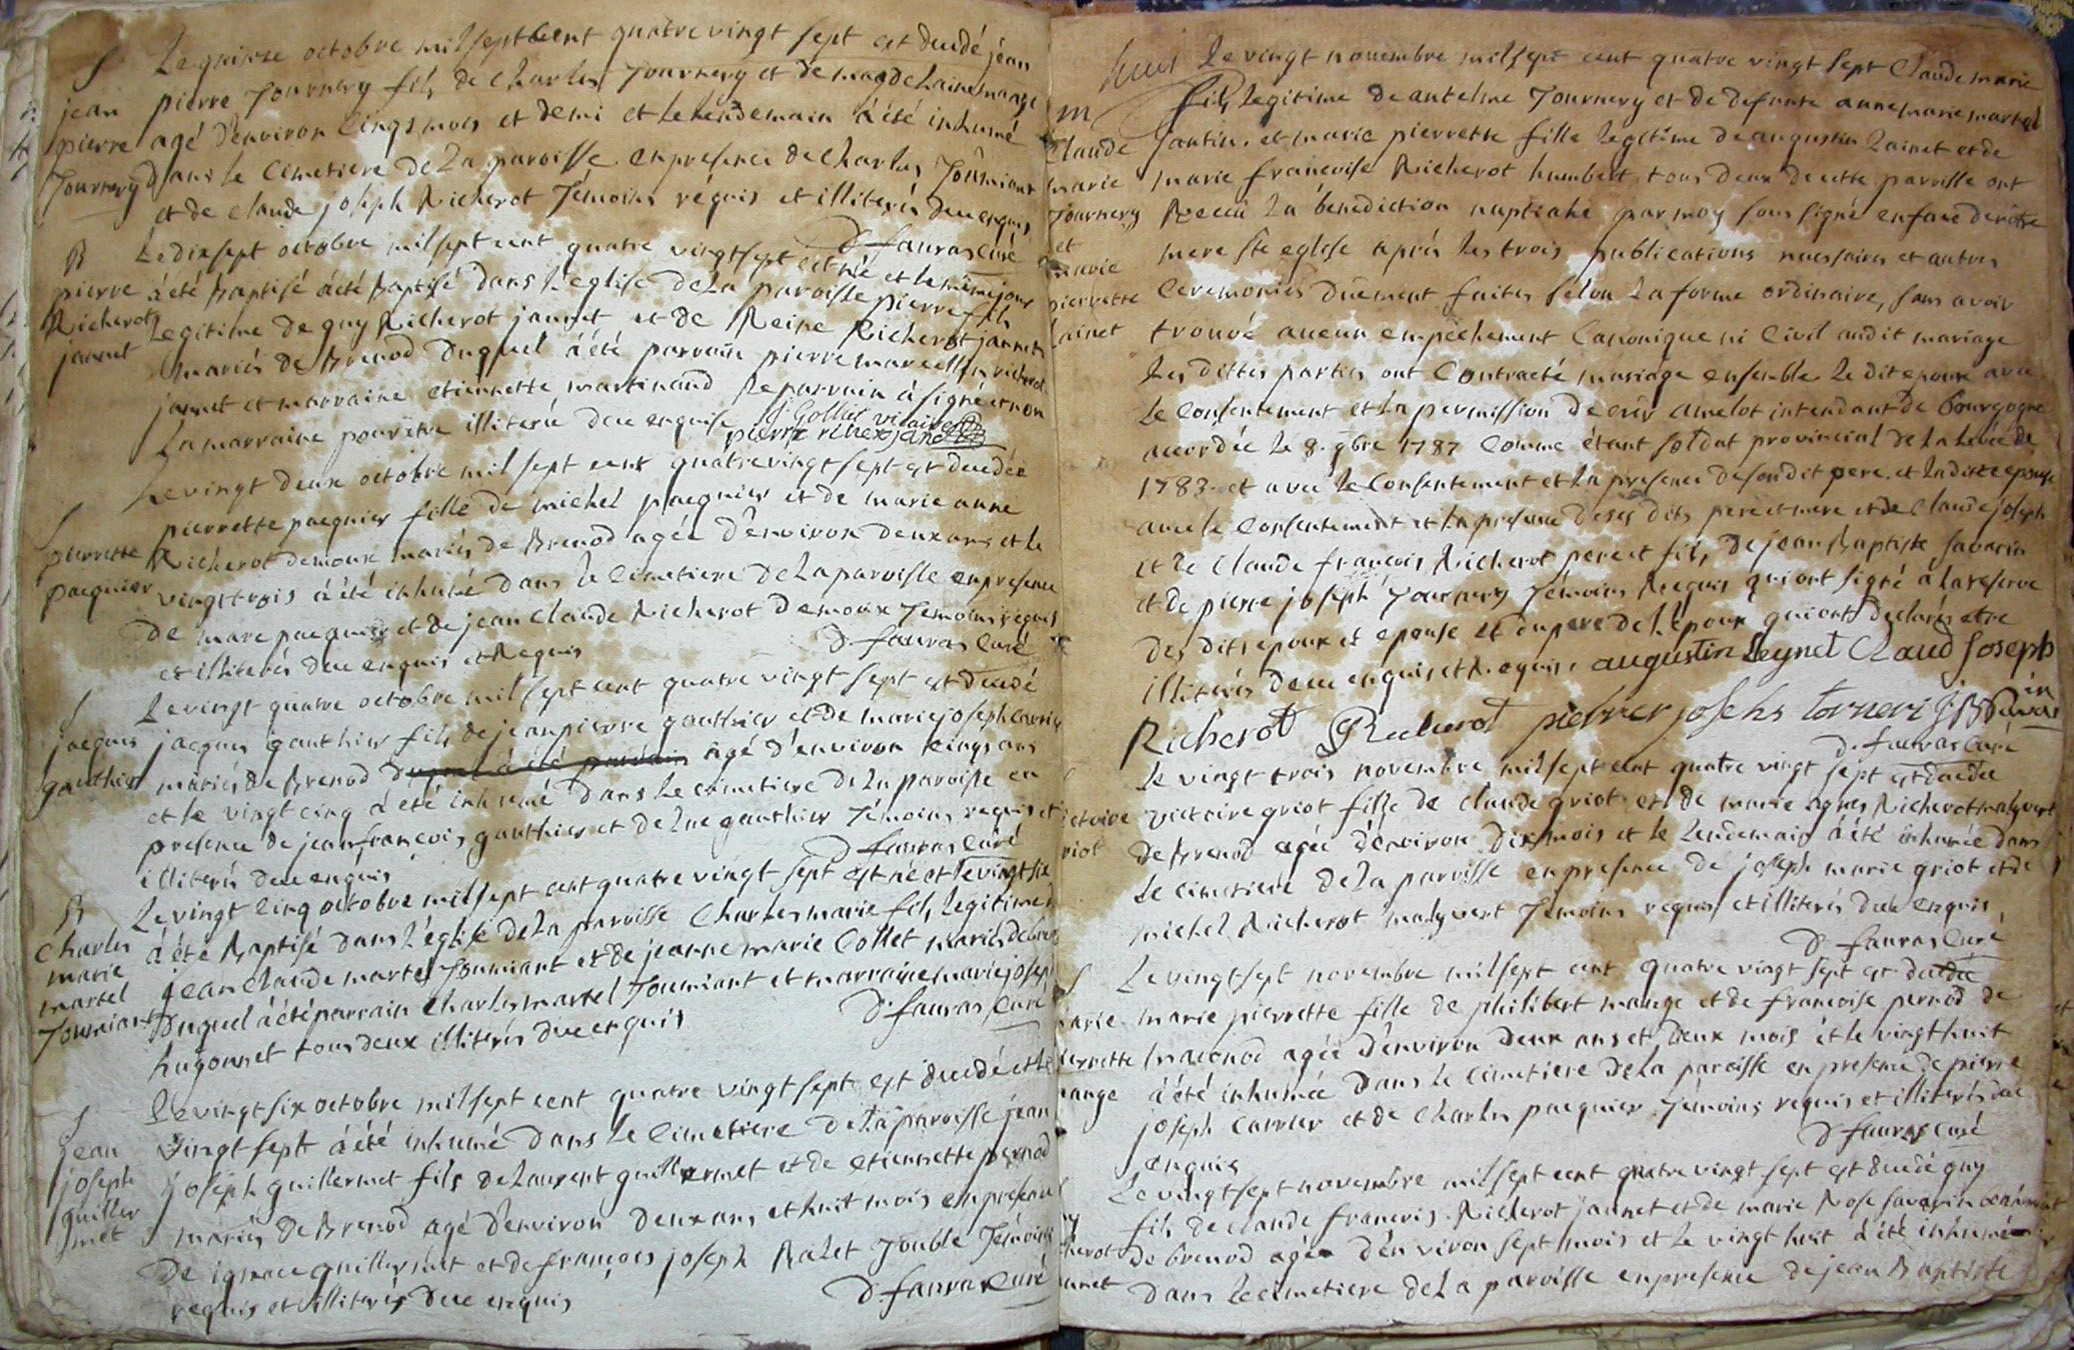 Le quinze octobre mil sept cent quatre vingt sept est decedé jean
S
jean
pierre
Tournery
pierre Tournery fils de Charles Tournery et de magdelaine mange
agé d'environ cinqs mois et demi et le lendemain à été inhumé
dans le cimetiere de la paroisse en presence de charles Toumiant
et de claude joseph Richerot Témoins réquis et illiterés deue enquis
D. fauras Curé
B
pierre
Richerot
jannet
Le dixsept octobre mil sept cent quatre vingt sept est né et le même jour
à été baptisé à été baptisé dans l'eglise de la paroisse pierre fils
legitime de guy Richerot jannet et de Reine Richerot jannet
mariés de Brenod duquel à été parrain pierre marcellin richerot
jannet et marraine etiennette martinand le parrain à signé et non
la marraine pour être illiterée deue enquise J. Gollet vicaire
pierre richerojane
S
pierrette
pacquier
Le vingt deux octobre mil sept cent quatre vingt sept est decedée
pierrette pacquier fille de michel pacquier et de marie anne
Richerot demoux mariés de Brenod agée d'environ deux ans et le
vingt trois à été inhumé dans le cimetiere de la paroisse en presence
de marc pacquier et de jean Claude Richerot demoux Temoins requis
et illiterés deue enquis et Requis
D. fauras Curé
S
jacques
gauthier
Le vingt quatre octobre mil sept cent quatre vingt sept est decedé
jacques gauthier fils de jean pierre gauthier et de marie joseph carrier
mariés de Brenod duquel à été parrain agé d'environ cinqs ans
et le vingt cinq à été inhumé dans le cimetiere de la paroisse en
presence de jean françois gauthier et de luc gauthier Témoins requis et
illiterés deue enquis
D. fauras Curé
B
Charles
marie
martel
Toumiant
Le vingt cinq octobre mil sept cent quatre vingt sept est né et le vingt six
à été Baptisé dans l'église de la paroisse Charles marie fils legitime
jean Claude martel Toumiant et de jeanne marie Collet mariés de
duquel à été parrain Charles martel Toumiant et marraine marie joseph
hugonnet tous deux illiterés due enquis
D. fauras Curé
S
jean
joseph
guiller
met
Le vingt six octobre mil sept cent quatre vingt sept est decedé et le
vingt sept à été inhumé dans le cimetiere de la paroisse jean
joseph guillermet fils de Laurent guillermet et de etiennette pernod
mariés de Brenod agé d'environ deux ans et huit mois en presence
de ignace guillermet et de françois joseph Balet Jouble Témoins
requis et illiterés deue enquis
D. fauras Curé
m
Claude
marie
Tournery
et
marie
pierrette
Lainet
Le vingt novembre mil sept cent quatre vingt sept Claude marie
fils legitime de antelme Tournery et de defunte anne marie martel
jantin. et marie pierrette fille legitime de augustin Lainet et de
marie françoise Richerot humbert tous deux de cette paroisse ont
Reccu la bénédiction nuptiale par moy sous signé en face de nôtre
mere ste eglise aprés les trois publications necessaires et autres
Ceremonies düement faites selon la forme ordinaire, sans avoir
trouvé aucun empêchement Canonique ni Civil audit mariage
Les dittes parties ont Contracté mariage ensemble le dit epoux avec
Le Consentement et la permission de amelot intendant de bourgogne
accordée le 8. 9bre 1787 Comme étant soldat provincial de la levée de
1783. et avec le Consentement et la presence de son dit pere. et la ditte epouse
avec le Consentement et la presence de ses dits pere et mere et de Claude joseph
et de Claude françois Richerot pere et fils, de jean Baptiste savarin
et de pierre joseph Tournery Témoins Requis qui ont signé à la reserve
des dits epoux et epouse et du pere de l'époux qui ont declarés etre
illiterés deue enquis et Requis. augustin Leynet Claud Joseph
Richerot Richerot pierrer josehs torneri J B Savarin
D. fauras Curé
Le vingt trois novembre mil sept cent quatre vingt sept est decedée
victoire griot fille de claude griot et de marie agnes Richerot malyvert
de Brenod agée d'environ dix mois et le lendemain à été inhumée dans
Le cimetiere de la paroisse en presence de joseph marie griot et de
michel Richerot malyvert Témoins requis et illiterés deue enquis
D. fauras Curé
Le vingt sept novembre mil sept cent quatre vingt sept est decedée
marie pierrette fille de philibert mange et de françoise pernod de
agée d'environ deux ans et deux mois et le vingt huit
à été inhumée dans le cimetiere de la paroisse en presence de pierre
joseph Carrier et de Charles pacquier Témoins requis et illiterés due
enquis
D. fauras Curé
Le vingt sept novembre mil sept cent quatre vingt sept est decedé guy
fils de claude francois Richerot jannet et de marie Rose savarin
de brenod agé d'environ sept mois et le vingt huit à été inhumé
dans le cimetiere de la paroisse en presence de jean Baptiste